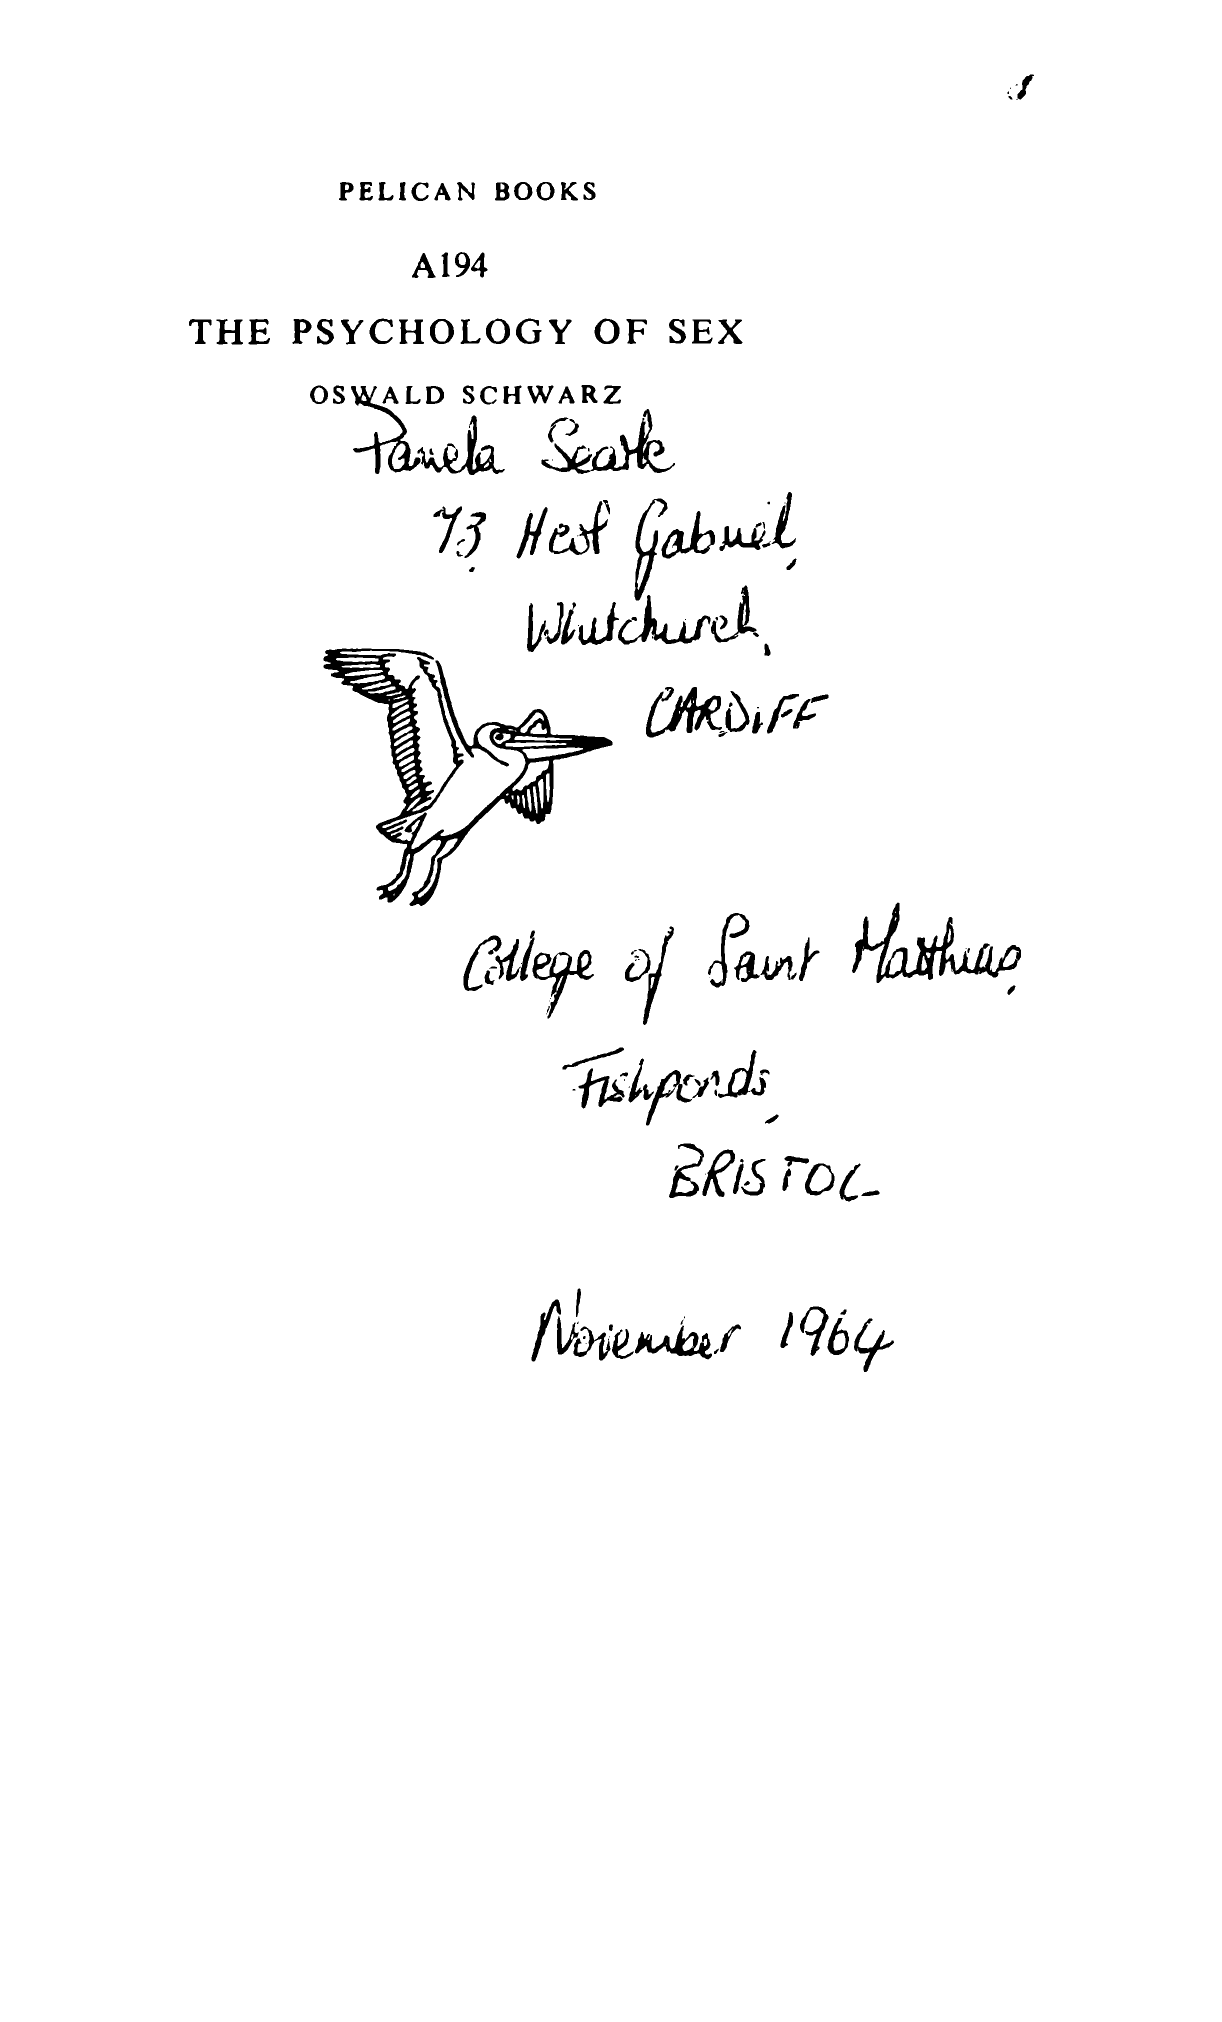 PELICAN BOOKS
A194
THE PSYCHOLOGY OF SEX
OSWALD SCHWARZ
Pamela Searle
73 Heol Gabriel,
Whitchurch,
CARDIFF
College of Saint Matthias,
Fishponds,
BRISTOL
November 1964